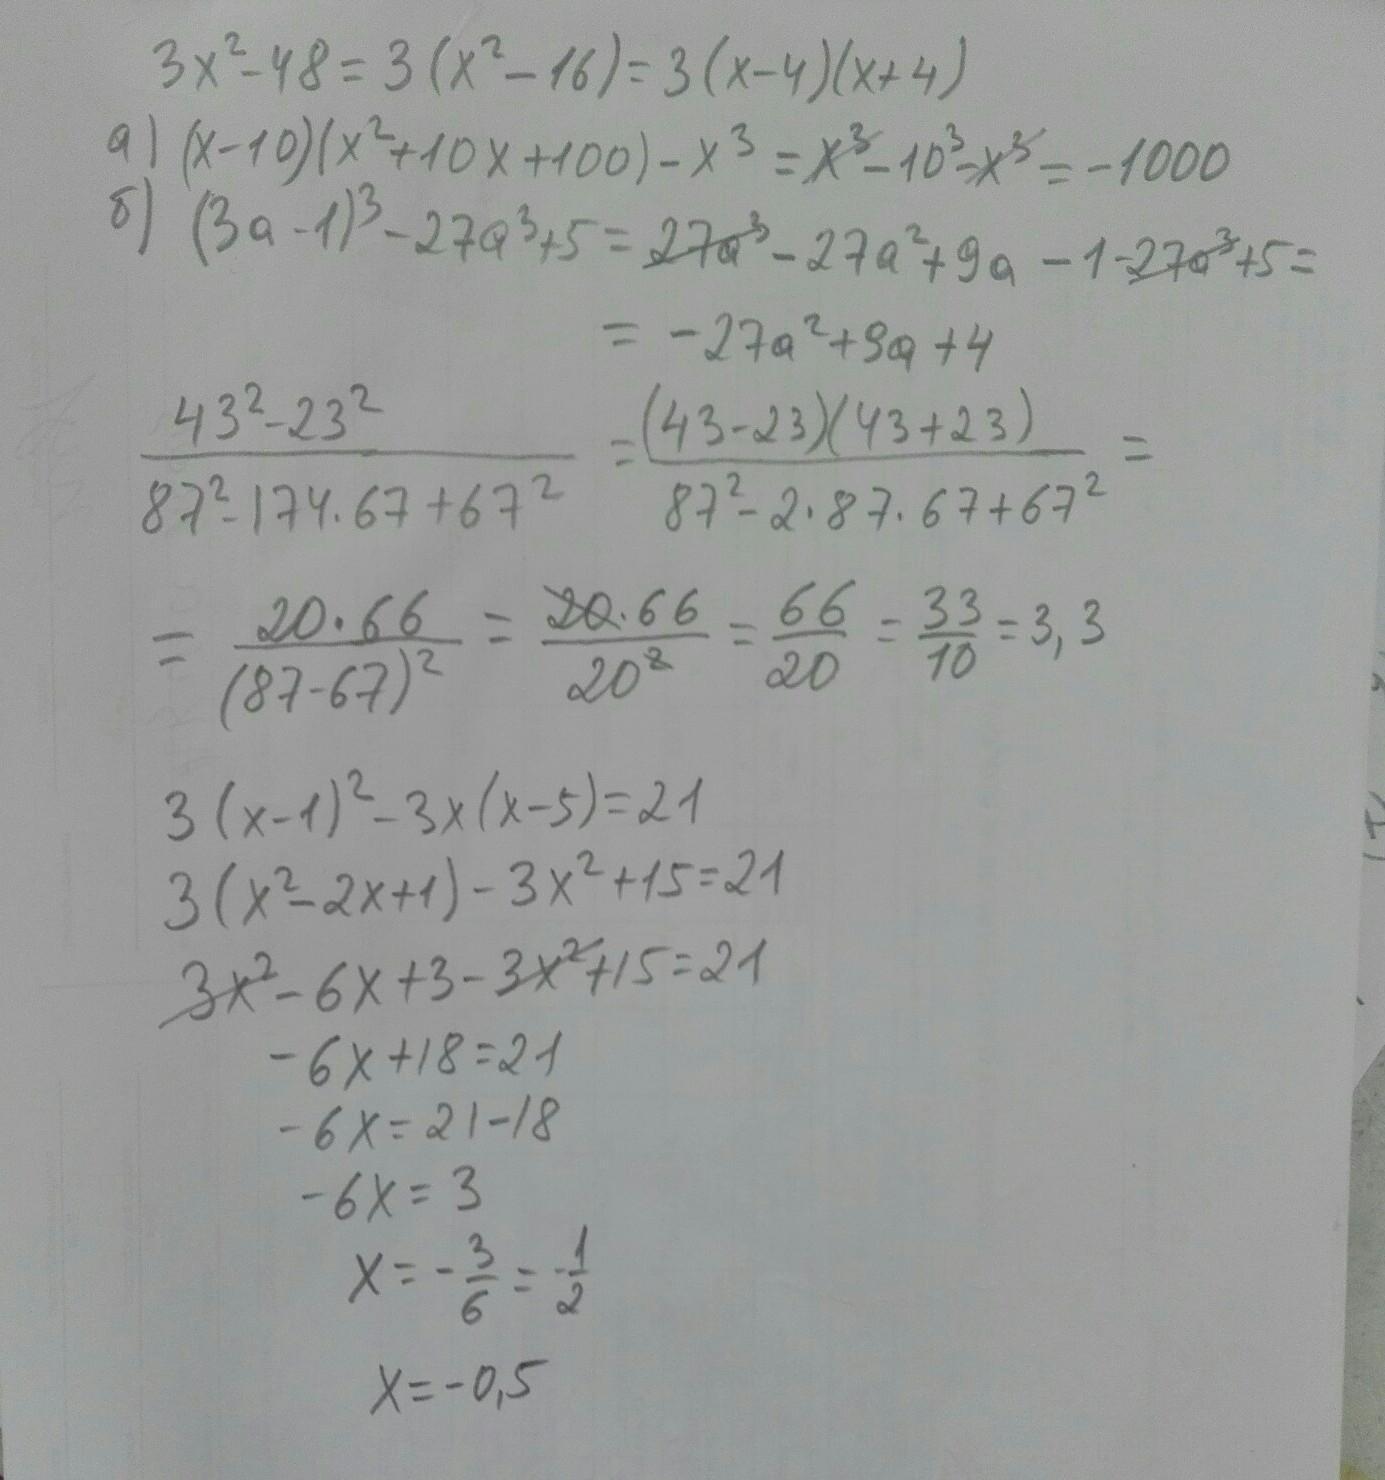 3x²-48=3(x²-16)=3(x-4)(x+4)
а) (x-10)(x²+10x+100)-x³=x³-10³-x³=-1000
б) (3a-1)³-27a³+5=27a³-27a²+9a-1-27a³+5=
=-27a²+9a+4
(43²-23²)/(87²-174·67+67²)=((43-23)(43+23))/(87²-2·87·67+67²)=
=(20·66)/((87-67)²)=(20·66)/(20²)=66/20=33/10=3,3
3(x-1)²-3x(x-5)=21
3(x²-2x+1)-3x²+15=21
3x²-6x+3-3x²+15=21
-6x+18=21
-6x=21-18
-6x=3
x=-3/6=-1/2
x=-0,5